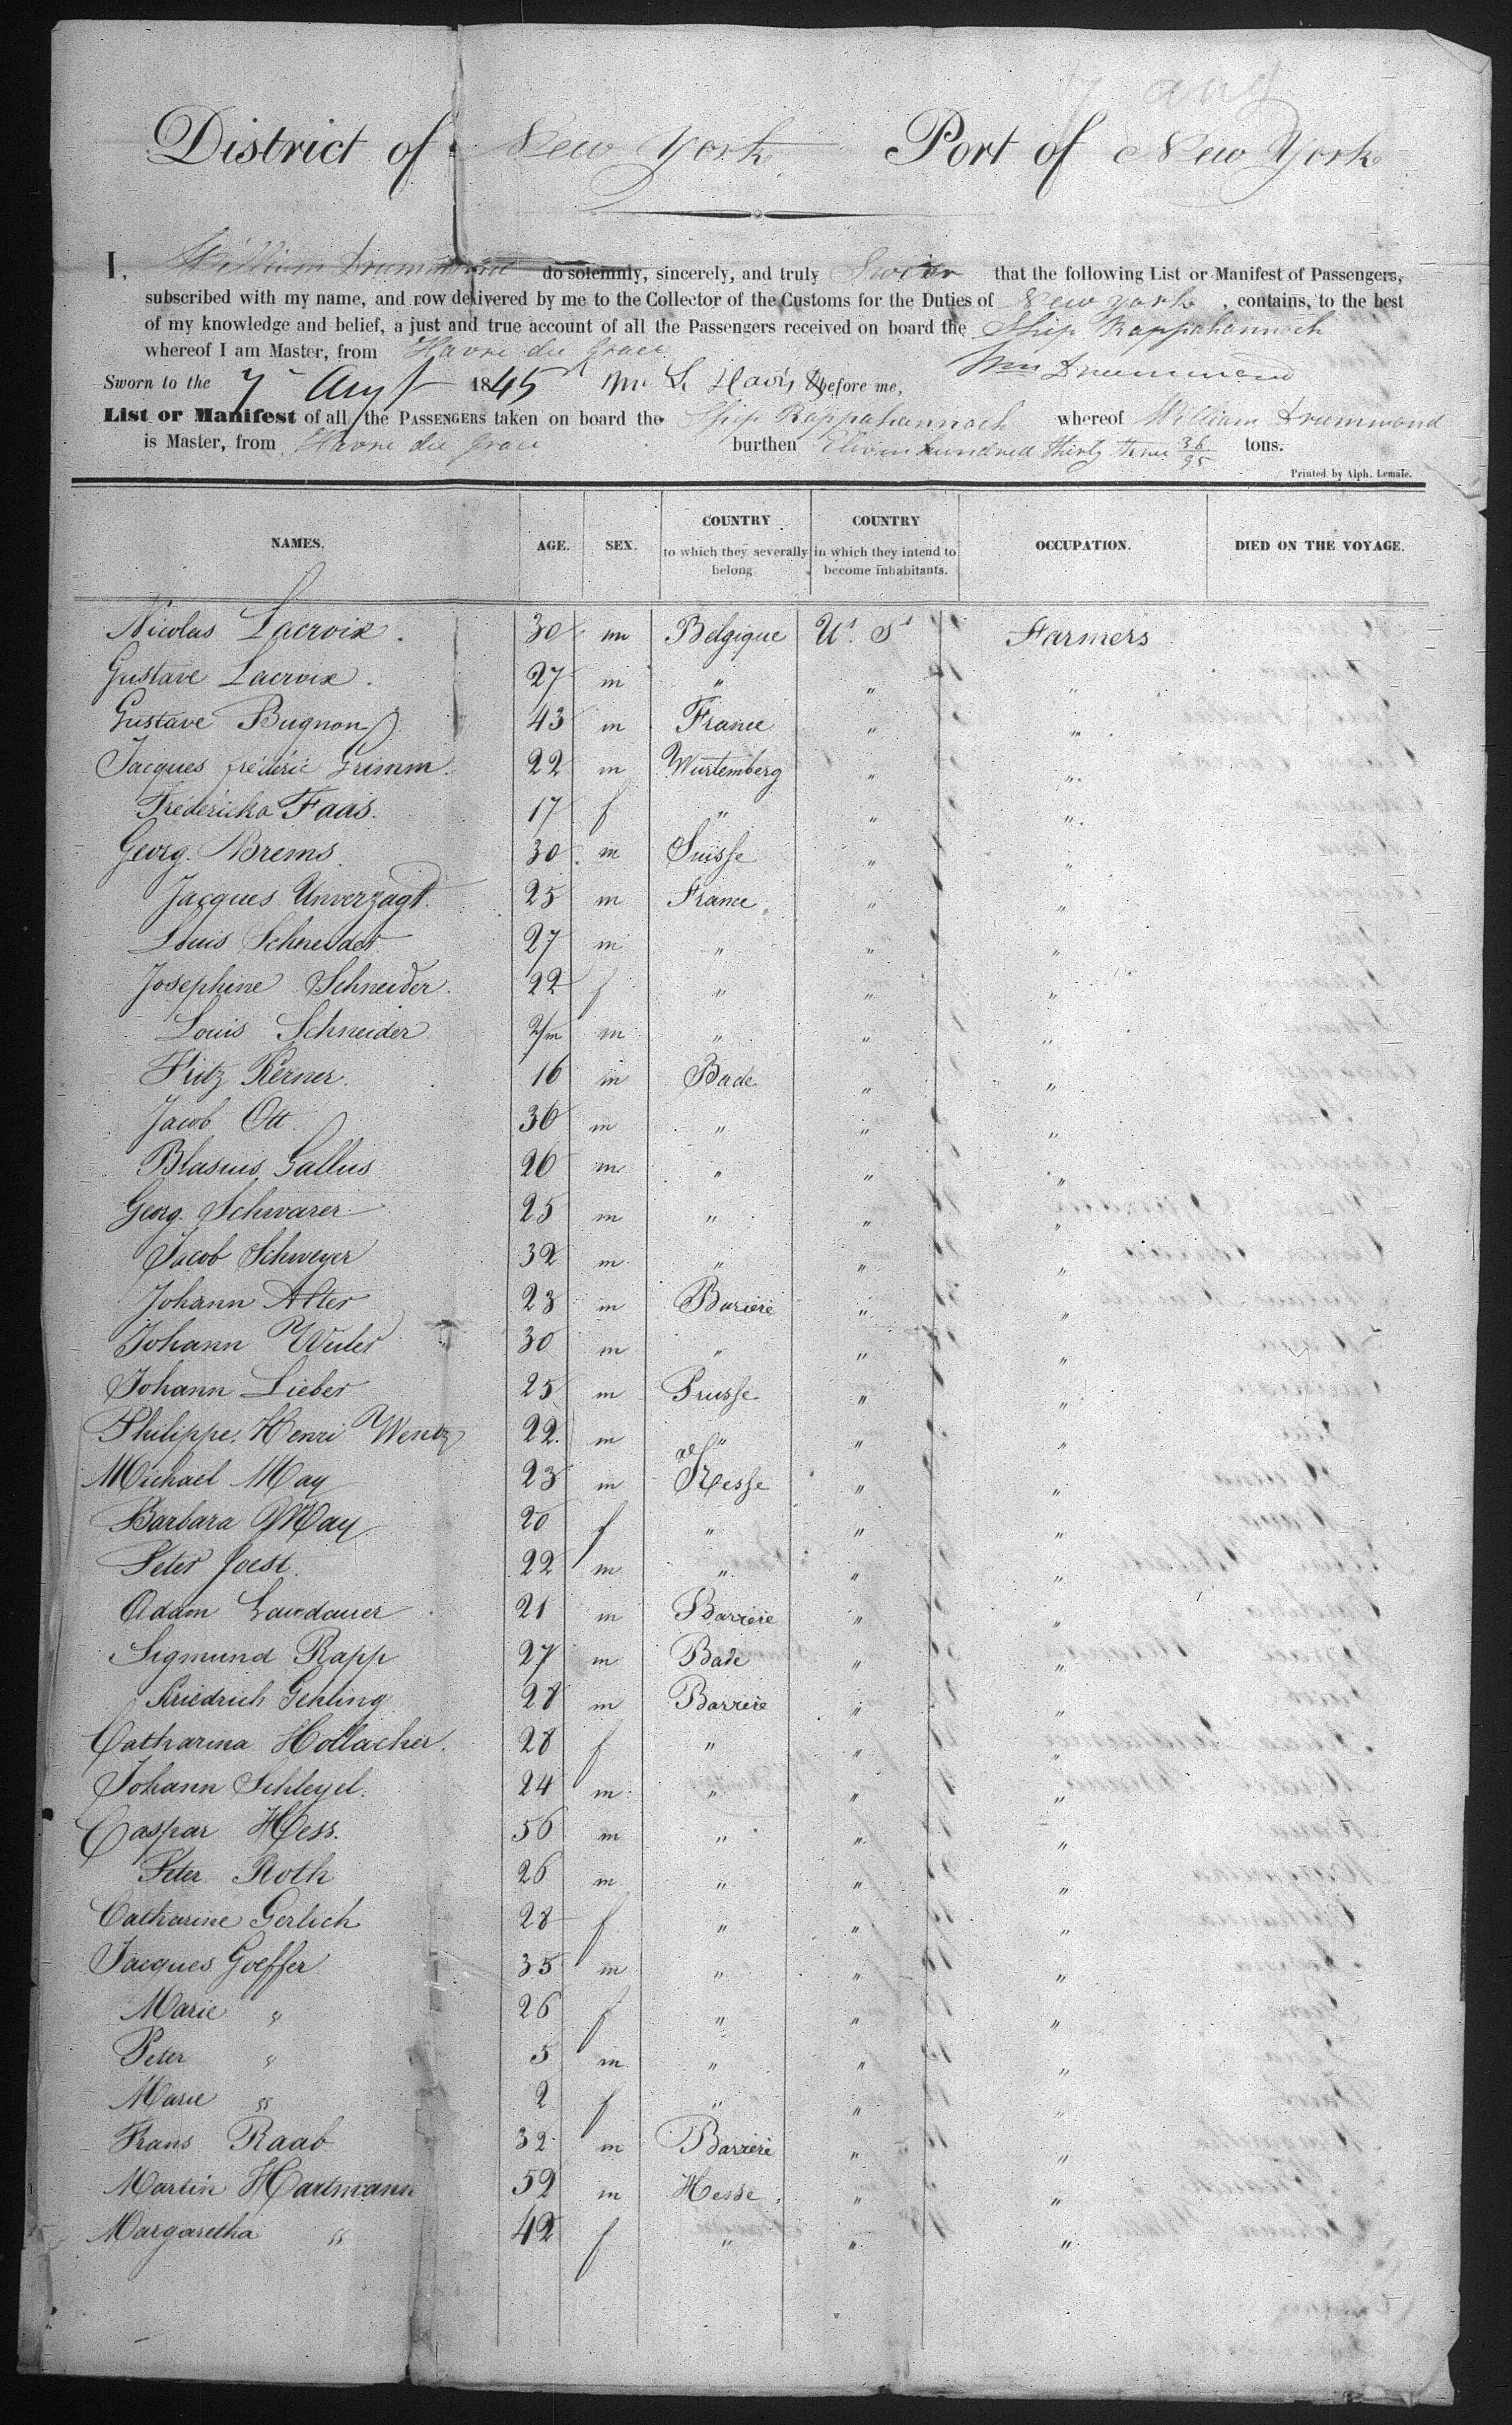 7 aug
District of New York Port of New York
I, William Drummond do solemnly, sincerely, and truly Swear that the following List or Manifest of Passengers,
subscribed with my name, and now delivered by me to the Collector of the Customs for the Duties of New York, contains, to the best
of my knowledge and belief, a just and true account of all the Passengers received on board the Ship Rappahannock
whereof I am Master, from Havre du Grace Wm Drummond
Sworn to the 7 Augst 1845 before me,
List or Manifest of all the PASSENGERS taken on board the Ship Rappahannock whereof William Drummond
is Master, from Havre du Grace burthen Eleven hundred thirty three 36/95 tons.
Printed by Alph. Lemale.
NAMES. AGE. SEX. COUNTRY to which they severally belong COUNTRY in which they intend to become inhabitants. OCCUPATION. DIED ON THE VOYAGE.
Nicolas Lacroix. 30 m Belgique Us Ss Farmers
Gustave Lacroix. 27 m " " "
Gustave Bugnon 43 m France " "
Jacques frédéric Grimm. 22 m Wurtemberg " "
Fredericka Faas. 17 f " " "
Georg. Brems. 30 m Suisse " "
Jacques Unverzagt. 25 m France " "
Louis Schneider 27 m " " "
Josephine Schneider. 22 f " " "
Louis Schneider 2/m m " " "
Fritz Kerner. 16 m Bade " "
Jacob Ott. 36 m " " "
Blasius Gallus 26 m " " "
Georg. Schwarer 25 m " " "
Jacob Schweyer 32 m " " "
Johann Alter 23 m Baviere " "
Johann Weiler 30 m " " "
Johann Lieber 25 m Prusse " "
Philippe Henri Wentz 22. m " " "
Michael May 23 m Hesse " "
Barbara May 20 f " " "
Peter Joest. 22 m " " "
Adam Landauer 21 m Baviere " "
Sigmund Rapp 27 m Bade " "
Friedrich Gehling 28 m Baviere " "
Catharina Hollacher. 28 f " " "
Johann Schleyel. 24 m " " "
Caspar Hess. 56 m " " "
Peter Roth 26 m " " "
Catharine Gerlich 28 f " " "
Jacques Goeffer 35 m " " "
Marie " 26 f " " "
Peter " 5 m " " "
Marie " 2 f " " "
Frans Raab 32 m Baviere " "
Martin Hartmann 52 m Hesse " "
Margaretha " 42 f " " "